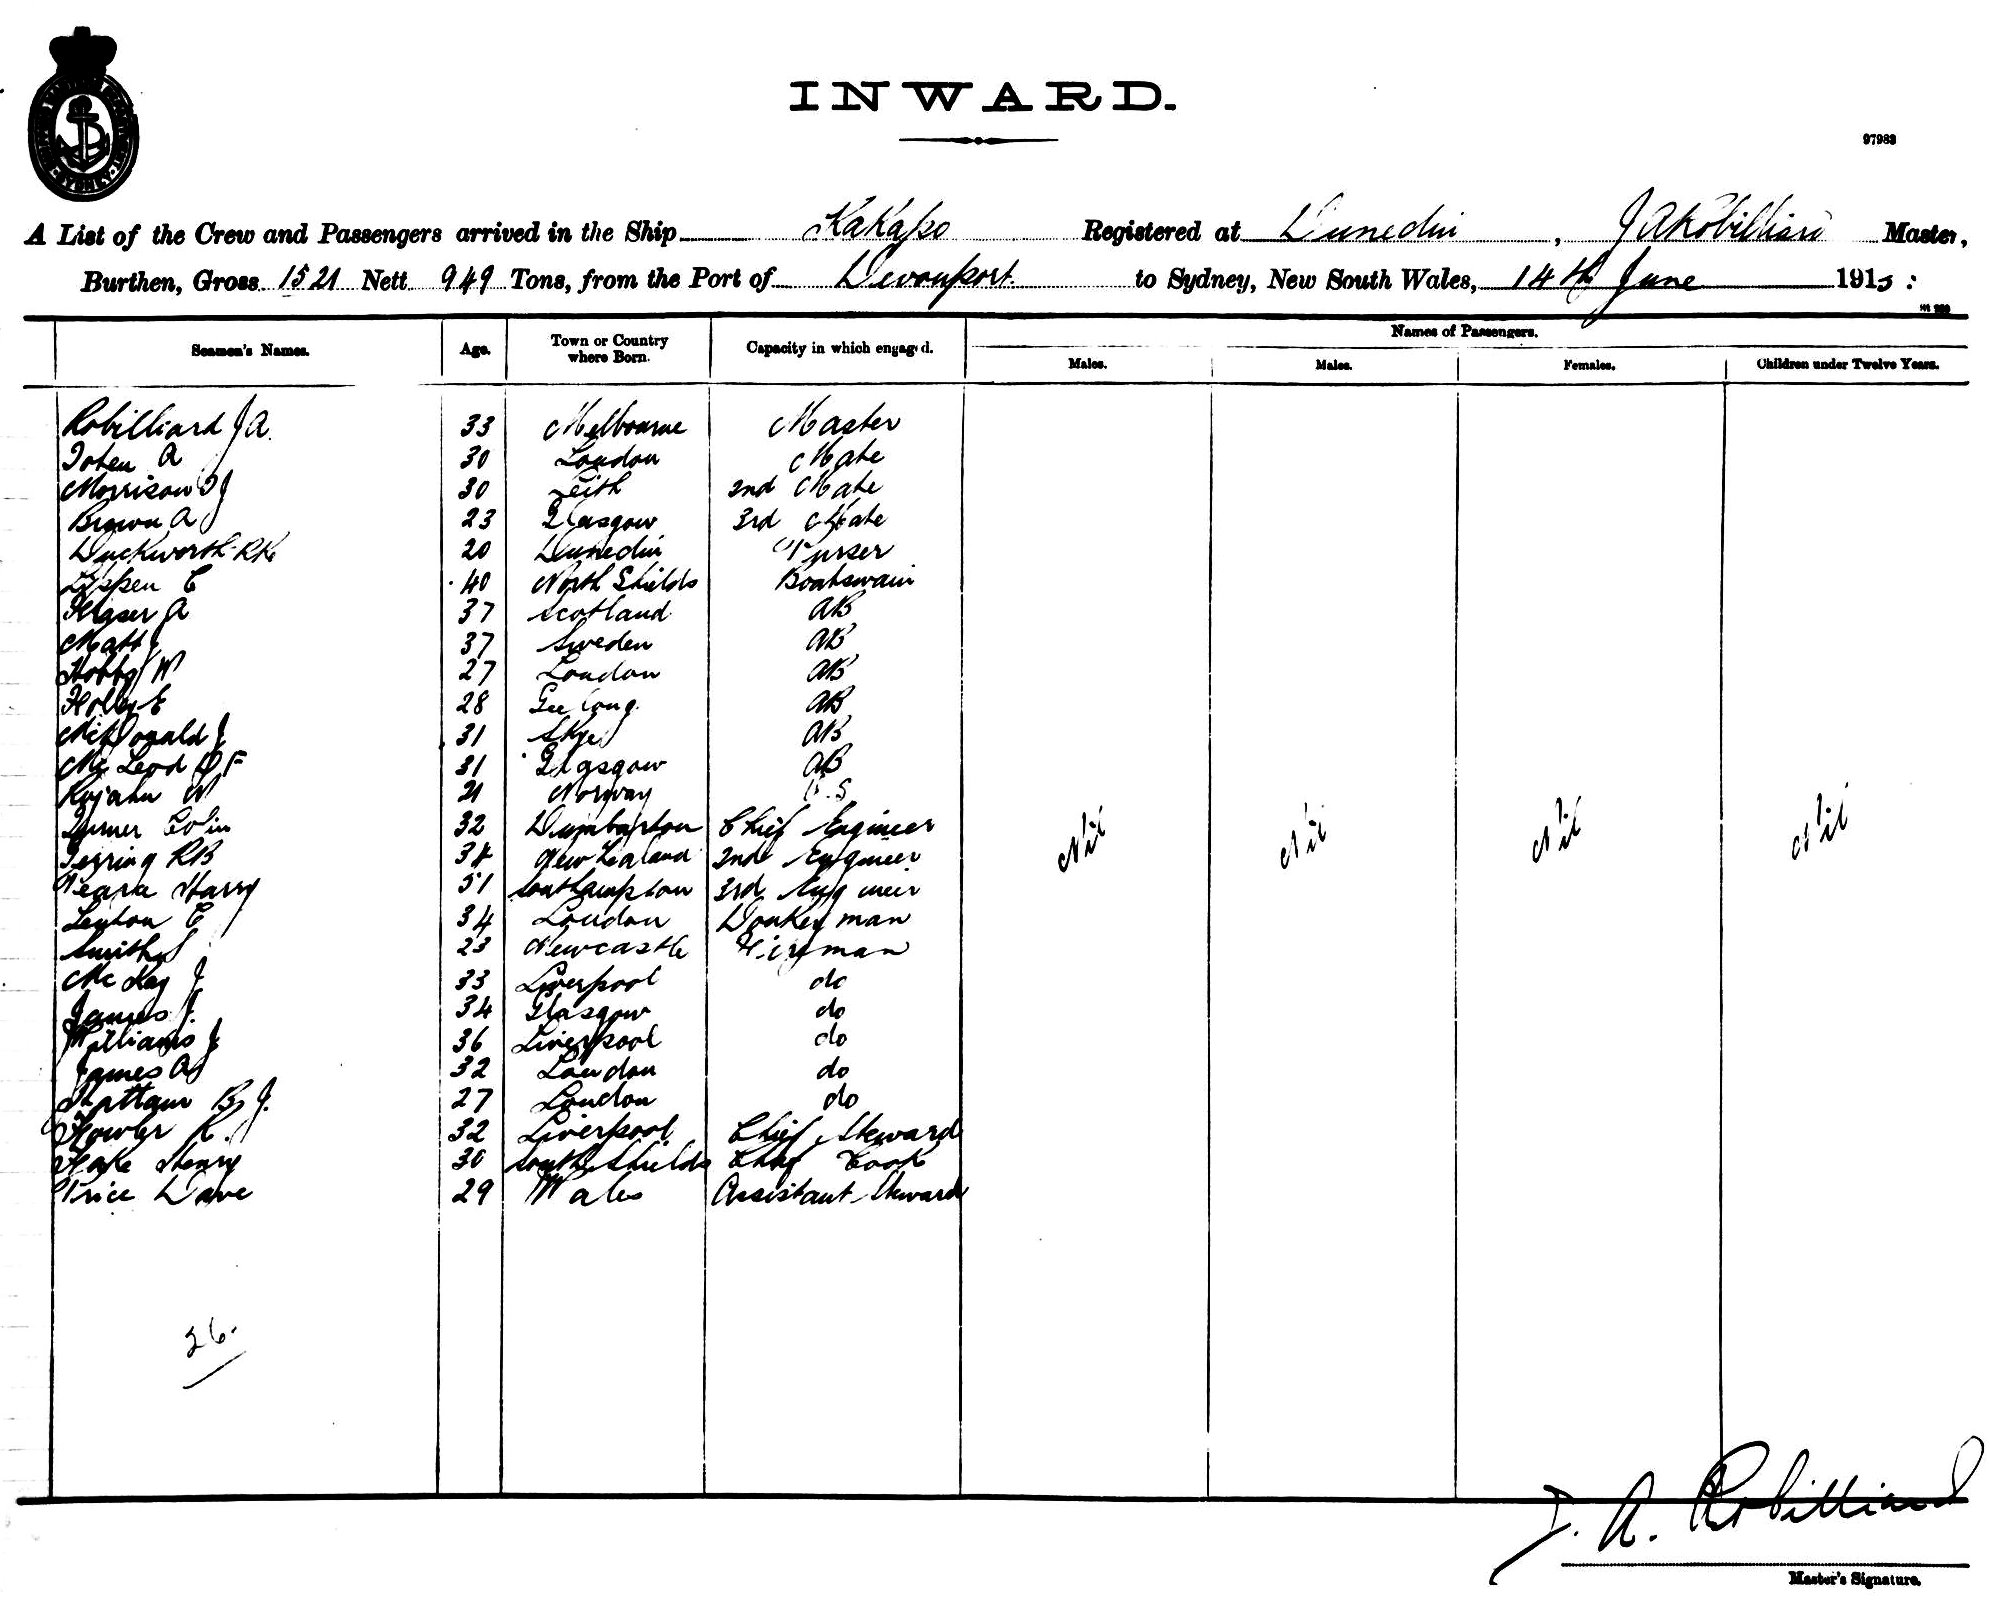 INWARD.
97983
A List of the Crew and Passengers arrived in the Ship Kakapo Registered at Dunedin, J A Robilliard Master,
Burthen, Gross 1521 Nett 949 Tons, from the Port of Devonport. to Sydney, New South Wales, 14th June 1915:
Names of Passengers.
Seamen's Names. Age. Town or Country where Born. Capacity in which engaged. Males. Males. Females. Children under Twelve Years.
Robilliard J A. 33 Melbourne Master
A 30 London Mate
Morrison J 30 Leith 2nd Mate
Brown A 23 Glasgow 3rd Mate
Duckworth R K 20 Dunedin Purser
C 40 North Shields Boatswain
Fraser A 37 Scotland AB
Matt J 37 Sweden AB
Hobbs W 27 London AB
Holley E 28 Geelong AB
McDonald J 31 Skye AB
Mc Leod D F 31 Glasgow AB
W 21 Norway O.S
Turner Colin 32 Dumbarton Chief Engineer
RB 34 New Zealand 2nd Engineer
Harry 51 Southampton 3rd Engineer
Lenton C 34 London Donkeyman
Smith J 23 Newcastle Fireman
Mc Kay J 33 Liverpool do
James J. 34 Glasgow do
Williams J 36 Liverpool do
James A 32 London do
B J. 27 London do
Fowler R. 32 Liverpool Chief Steward
Hake Henry 30 South Shields Chief Cook
Price Dave 29 Wales Assistant Steward
Nil Nil Nil Nil
26.
J. A. Robilliard
Master's Signature.